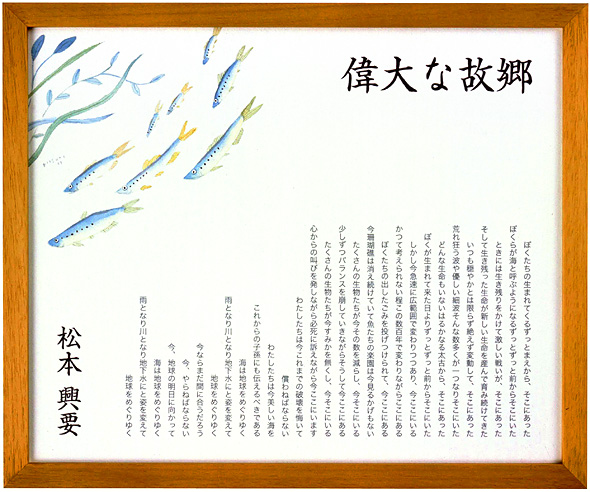 偉大な故郷
ぼくたちの生まれてくるずっとまえから、そこにあった
ぼくらが海と呼ぶようになるずっとずっと前からそこにいた
ときには生き残りをかけて激しい戦いが、そこにあった
そして生き残った生命が新しい生命を産んで育み続けてきた
いつも穏やかとは限らず絶えず変動して、そこにあった
荒れ狂う波や優しい細波そんな数多くが一つなりそこにいた
どんな生命もいないはるかなる太古から、そこにあった
ぼくが生まれて来た日よりずっとずっと前からそこにいた
しかし今急速に広範囲で変わりつつあり、今ここにいる
かつて考えられない程この数百年で変わりながらここにある
ぼくたちの出したごみを投げつけられて、今ここにある
今珊瑚礁は消え続けていて魚たちの楽園は今見るかげもない
たくさんの生物たちが今その数を減らし、今そこにいる
少しずつバランスを崩していきながらそうして今ここにある
たくさんの生物たちが今すみかを無くし、今そこにいる
心からの叫びを発しながら必死に訴えながら今ここにいます
わたしたちは今これまでの破壊を悔いて
償わねばならない
わたしたちは今美しい海を
これからの子孫にも伝えるべきである
海は地球をめぐりゆく
雨となり川となり地下水にと姿を変えて
地球をめぐりゆく
今ならまだ間に合うだろう
今、やらねばならない
今、地球の明日に向かって
海は地球をめぐりゆく
雨となり川となり地下水にと姿を変えて
地球をめぐりゆく
松本 興要